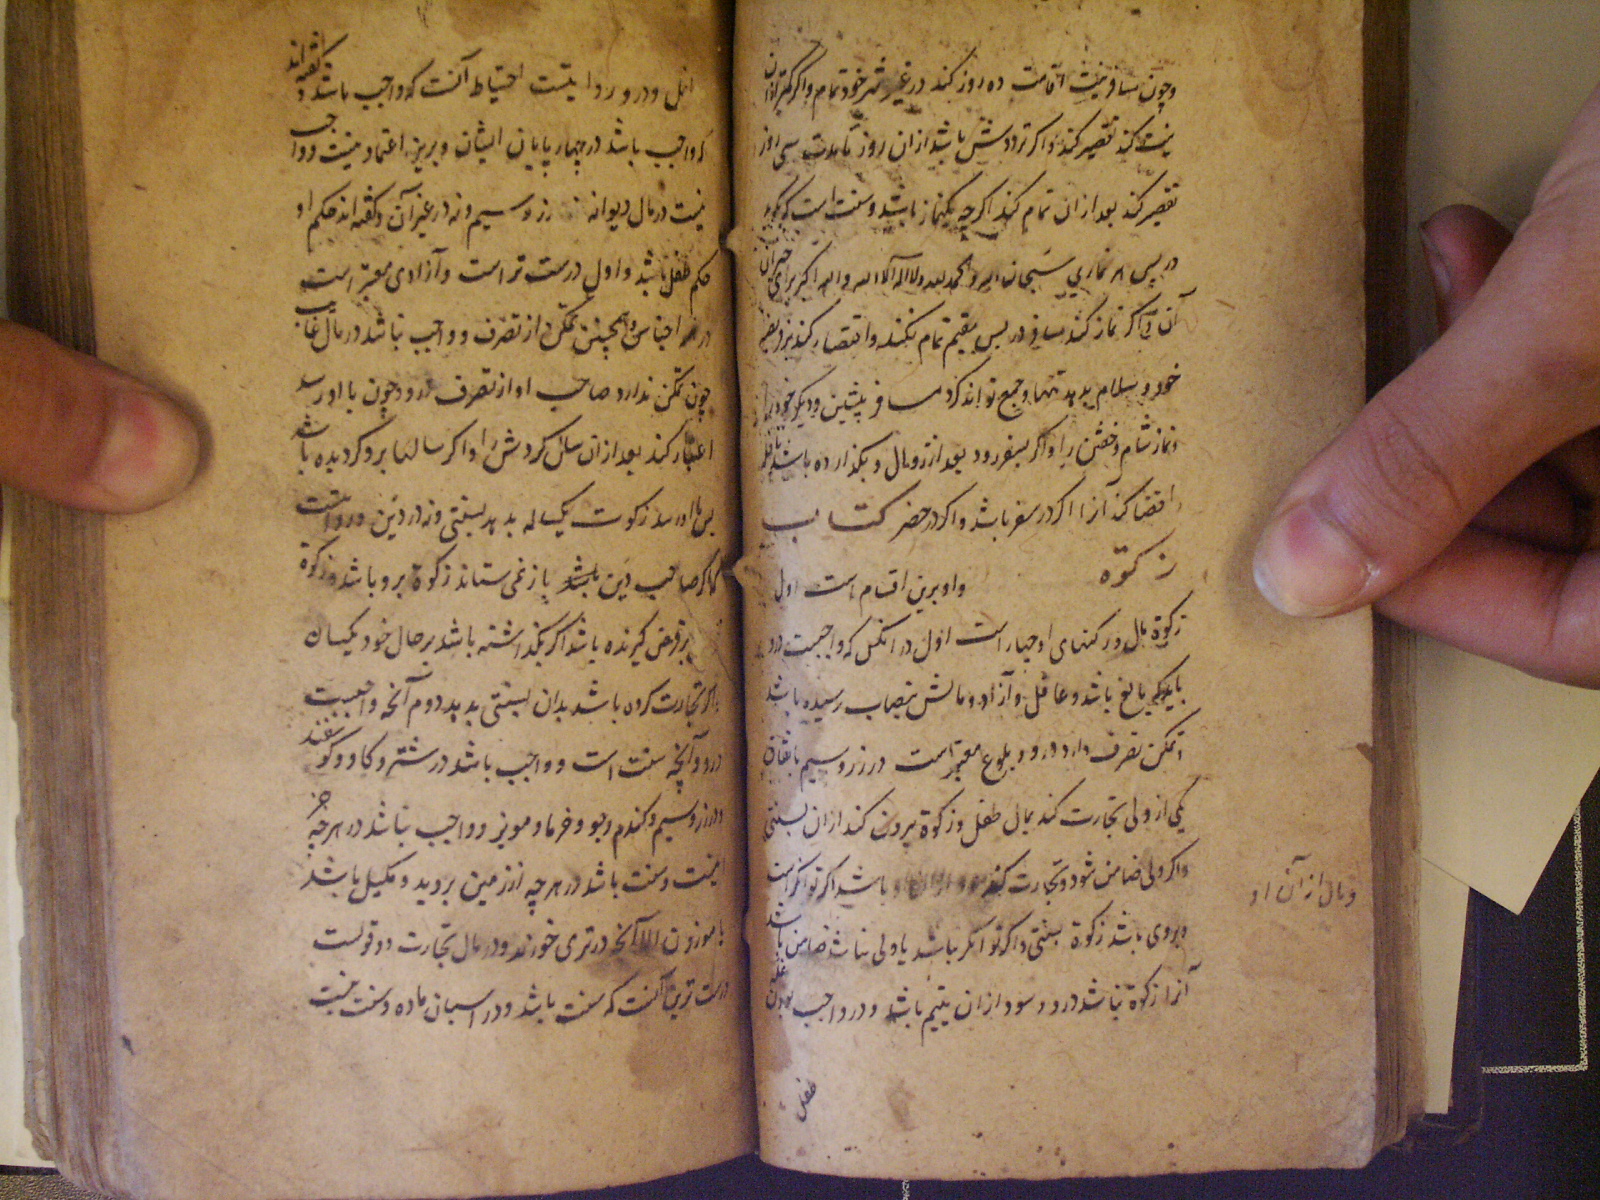 وچون مسافر نیت اقامت ده روز کند در غیر شهر خود تمام واکر کمتر ازان
نیت کند تقصیر کند واکر تردد کند باشد ازان روز تا مدت سی روز
تقصیر کند بعد ازان تمام کند اکرچه یکنماز باشد وسنت است که بکوید
در پس هر نمازی سبحان الله والحمد لله ولا اله الا الله والله اکبر برای جبران
آن واکر نماز کند مسافر در پس مقیم تمام نکند واقتصار کند بر فرض
خود وسلام بدهد تنها وجمع تواند کرد مسافر پیشین ودیکر خود را
ونماز شام وخفتن را واکر بسفر رود بعد از زوال و نکذارده باشد نافله
قضا کند آنرا اکر در سفر باشد واکر در حضر کتاب
زکوة
واو برین اقسام است اول
زکوة مال ودر رکنهای او چهار است اول در انکس که واجبست درو
باید که بالغ باشد وعاقل وآزاد ومالش بنصاب رسیده باشد
تمکن تصرف دارد درو وبلوغ معتبر است در زر وسیم باتفاق
یکی از ولی تجارت کند بمال طفل وزکوة بیرون کند ازان بسنتی
واکر ولی ضامن شود وتجارت کند باشد اکر توانکر است
ومال از آن او
وبروی باشد زکوة بسنتی واکر توانکر نباشد یا ولی نباشد ضامن باشد
آنرا زکوة نباشد درو وسود ازان یتیم باشد ودر واجب بودن
طفل
ودرو روا نیست احتیاط آنست که واجب باشد وکفته اند
که واجب باشد در چهار پایان ایشان وبرین اعتماد نیست وواجب
نیست در مال دیوانه زر وسیم ونه در غیر آن وکفته اند حکم او
حکم طفل باشد واول درست تر است وآزادی معتبر است
در هر اجناس وهمچنین تمکن از تصرف وواجب نباشد در مال غایب
چون تمکن ندارد صاحب او از تصرف درو وچون با او رسد
اعتبار کند بعد ازان سال کردش را واکر سالها برو کردیده باشد
پس با او رسد زکوت یکساله بدهد بسنتی ونه در دین ودر روایتست
که اکر صاحب دین باشد باز نمی ستاند زکوة برو باشد وزکوة
بر قرض کیرنده باشد اکر بکذاشته باشد بر حال خود یکسان
اکر تجارت کرده باشد بدان بسنتی بدهد دوم آنچه واجبست
درو وآنچه سنت است وواجب باشد در شتر وکاو وکوسفند
ودر زر وسیم وکندم وجو وخرما ومویز وواجب نباشد در هرچه جز
اینست وسنت باشد در هرچه از زمین بروید ومکیل باشد
یا موزون الا آنچه در تری خورند ودر مال تجارت دو قولست
درست ترین آنست که سنت باشد ودر اسبان ماده وسنت نیست